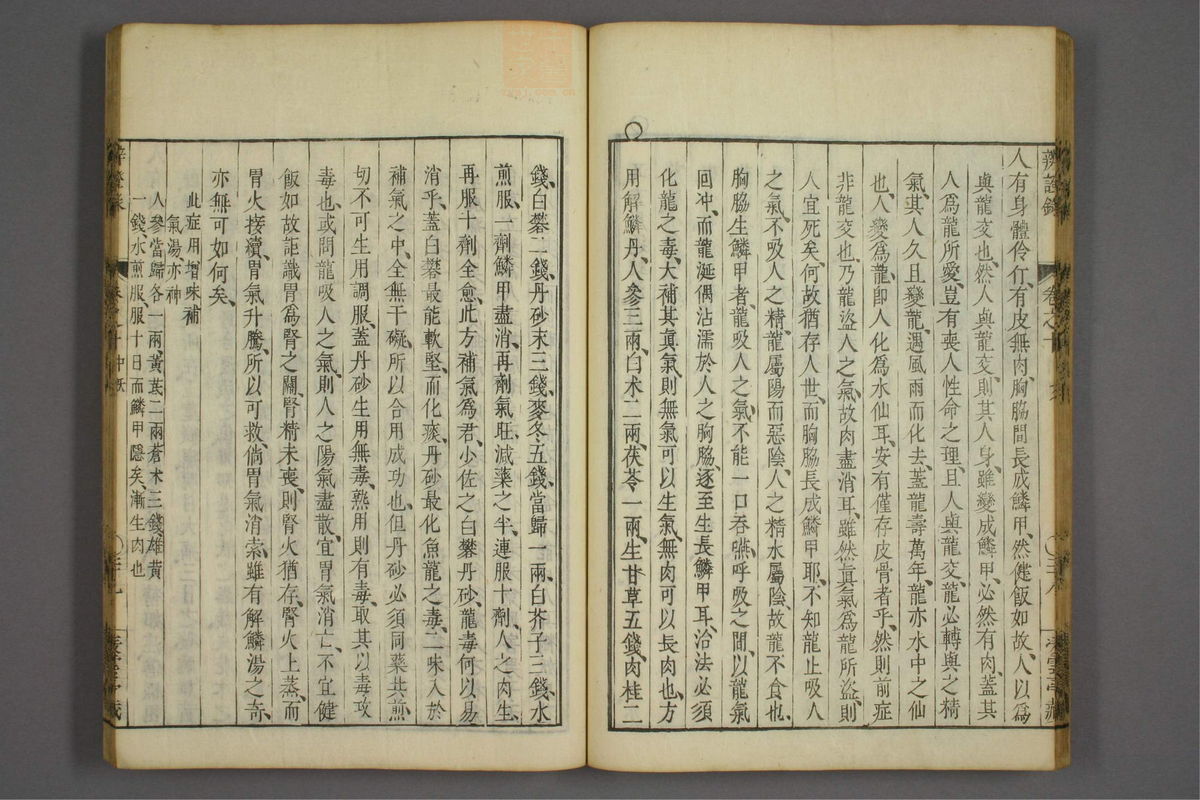 辨證錄 卷之十
人有身體伶仃、有皮無肉、胸脇間長成鱗甲、然健飯如故、人以爲
與龍交也、然人與龍交、則其人身雖變成鱗甲、必然有肉、蓋其
人爲龍所愛、豈有喪人性命之理、且人與龍交、龍必轉與之精
氣、其人久且變龍、遇風雨而化去、蓋龍壽萬年、龍亦水中之仙
也、人變爲龍、卽人化爲水仙耳、安有僅存皮骨者乎、然則前症
非龍交也、乃龍盜人之氣、故肉盡消耳、雖然眞氣爲龍所盜、則
人宜死矣、何故猶存人世、而胸脇長成鱗甲耶、不知龍止吸人
之氣、不吸人之精、龍屬陽而惡陰、人之精水屬陰、故龍不食也、
胸脇生鱗甲者、龍吸人之氣、不能一口吞嚥、呼吸之間、以龍氣
回冲、而龍涎偶沾濡於人之胸脇、逐至生長鱗甲耳、治法必須
化龍之毒、大補其眞氣、則無氣可以生氣、無肉可以長肉也、方
用解鱗丹、人參三兩、白术二兩、茯苓一兩、生甘草五錢、肉桂二
錢、白礬二錢、丹砂末三錢、麥冬五錢、當歸一兩、白芥子三錢、水
煎服、一劑鱗甲盡消、再劑氣旺、減藥之半、連服十劑、人之肉生、
再服十劑全愈、此方補氣爲君、少佐之白礬丹砂、龍毒何以易
消乎、蓋白礬最能軟堅、而化痰、丹砂最化魚龍之毒、二味入於
補氣之中、全無干礙、所以合用成功也、但丹砂必須同藥共煎、
切不可生用調服、蓋丹砂生用無毒、熟用則有毒、取其以毒攻
毒也、或問龍吸人之氣、則人之陽氣盡散、宜胃氣消亡、不宜健
飯如故、詎識胃爲腎之關、腎精未喪、則腎火猶存、腎火上蒸、而
胃火接續、胃氣升騰、所以可救、倘胃氣消索、雖有解鱗湯之奇、
亦無可如何矣、
此症用增味補
氣湯亦神
人參當歸各一兩、黃茋二兩、蒼术三錢、雄黃
一錢、水煎服、服十日而鱗甲隱矣、漸生肉也